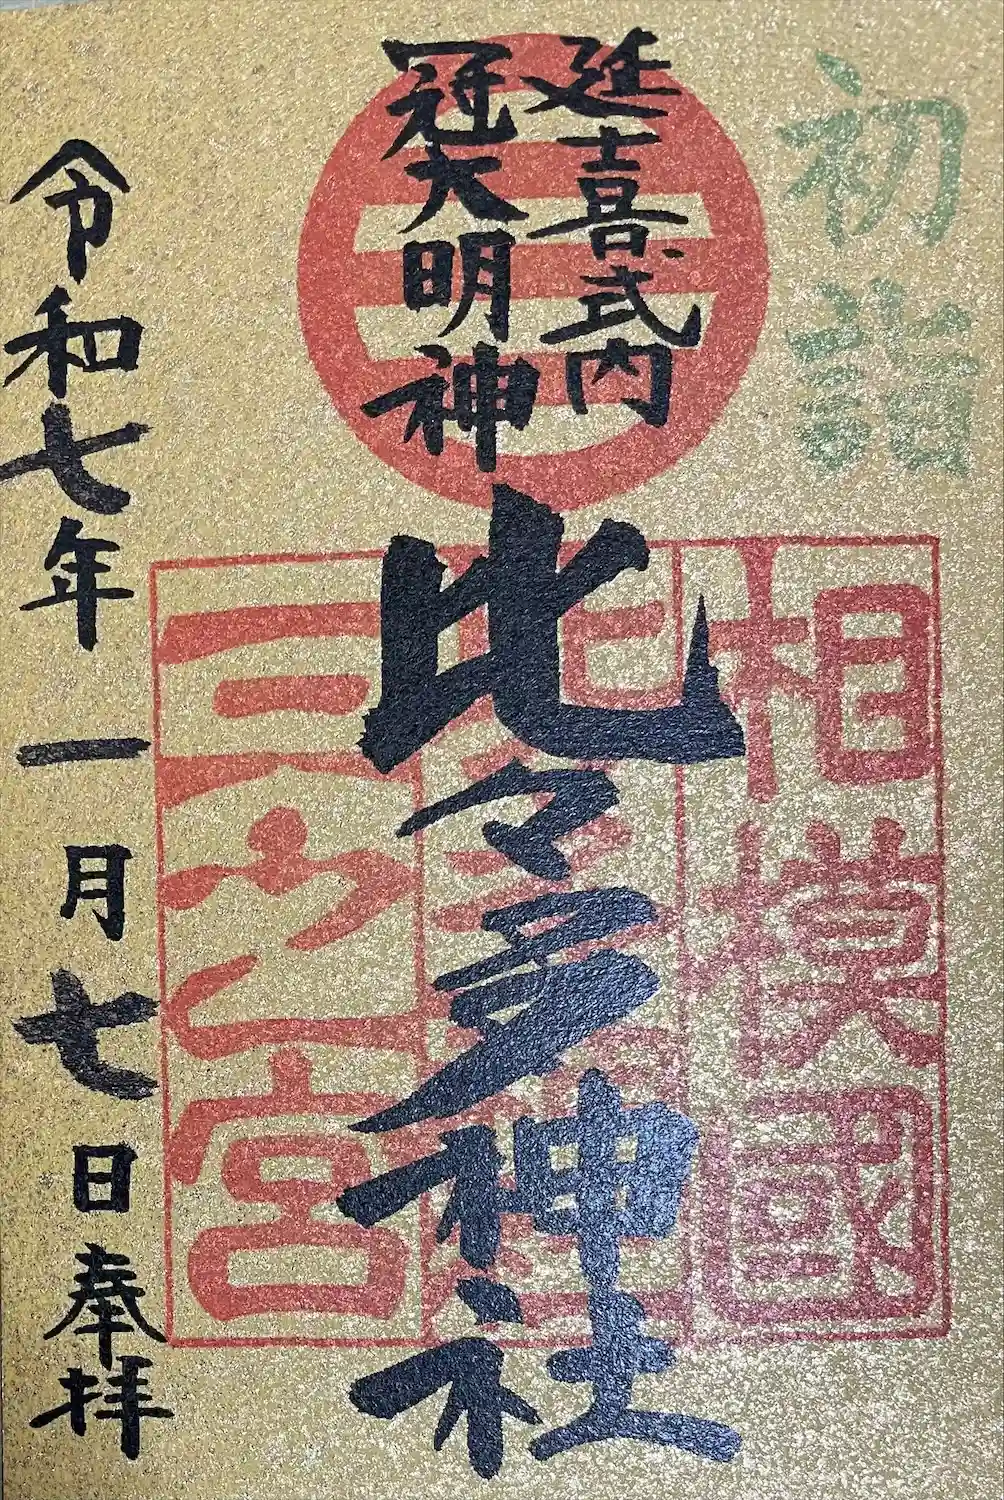 初詣
延喜式内
冠大明神
比々多神社
相模國
三之宮
令和七年一月七日奉拝